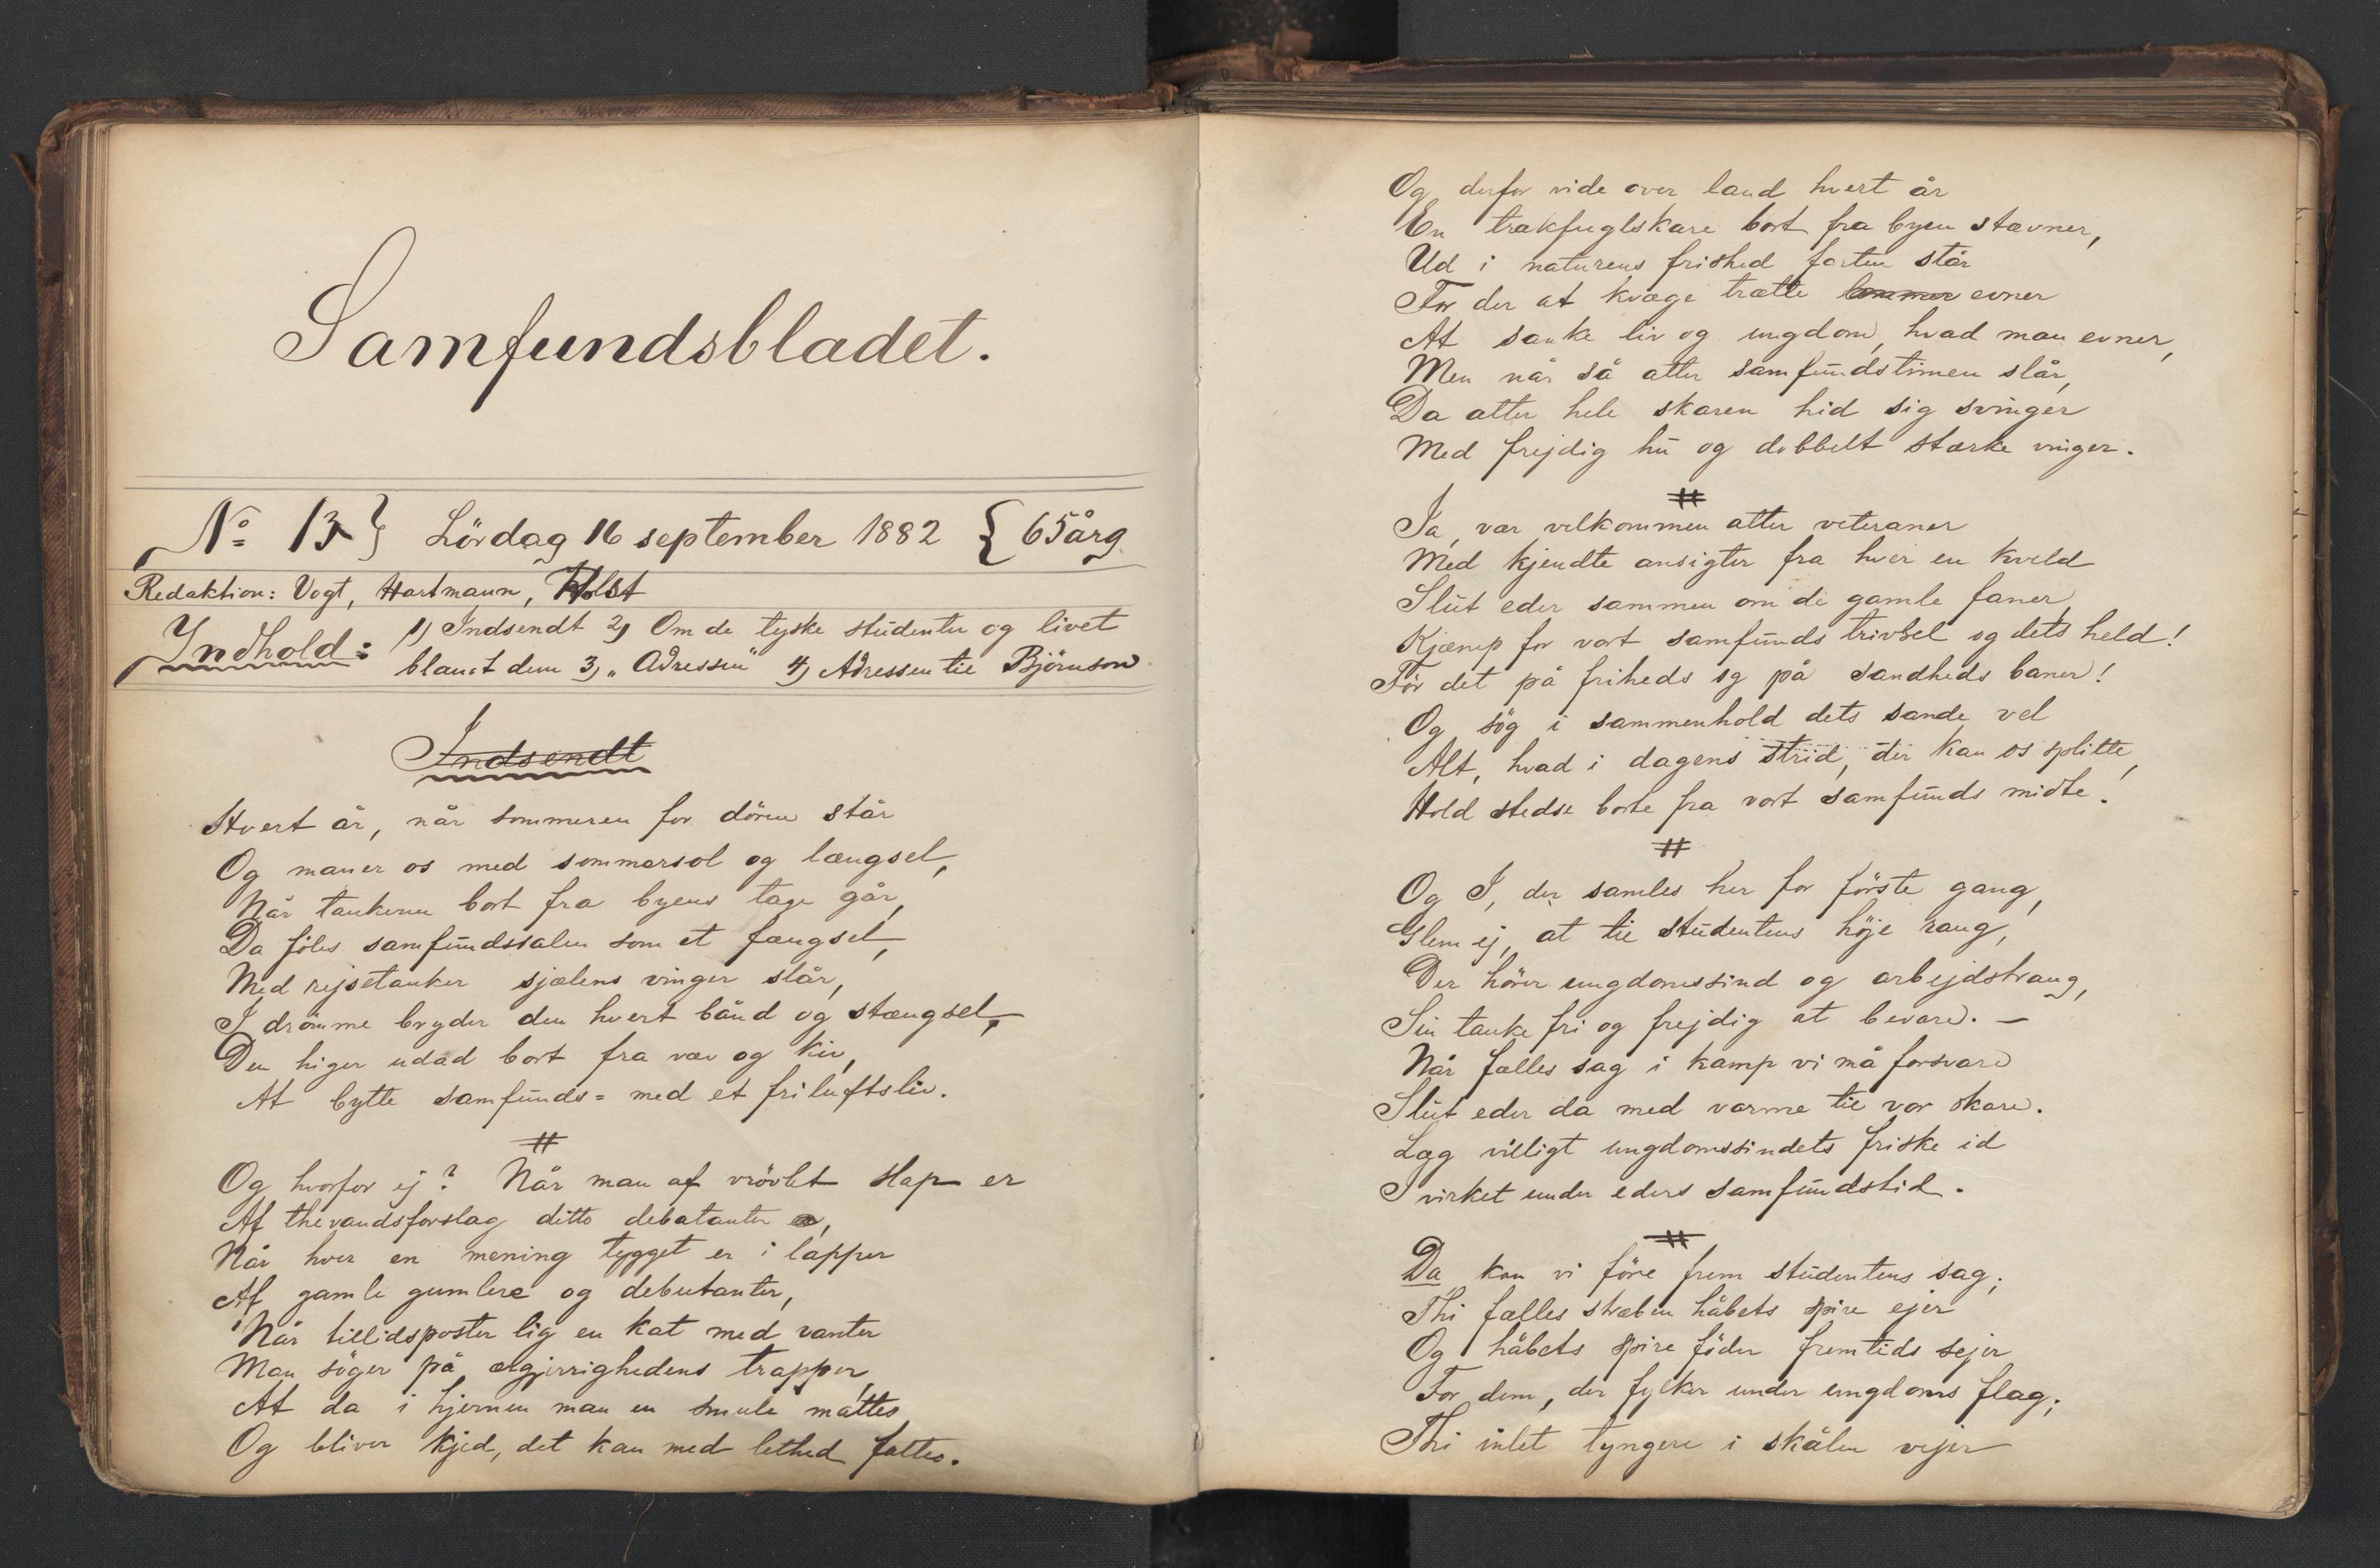 Samfundsbladet.
No 13 } Lördag 16 september 1882 { 65 årg.
Redaktion: Vogt, Hartmann, Holst
Indhold: 1) Indsendt 2) Om de tyske studenter og livet
blandt dem 3) „Adressen" 4) Adressen til Björnson
Indsendt
Hvert år, når sommeren for dören står
Og maner os med sommersol og længsel,
Når tankerne bort fra byens tage går,
Da föles samfundssalen som et fængsel,
Med rejsetanker sjælens vinger slår,
I drömme bryder den hvert bånd og stængsel,
Den higer udad bort fra væv og kiv,
At bytte samfunds= med et friluftsliv.
#
Og hvorfor ej? Når man af vrövlet slap er
Af thevandsforslag ditto debatanter,
Når hver en mening tygget er i lapper
Af gamle gumlere og debutanter,
Når tillidsposter lig en kat med vanter
Man söger på ærgjerrighedens trapper,
At da i hjernen man en smule mattes
Og bliver kjed, det kan med lethed fattes.
Og derfor vide over land hvert år
En trækfuglskare bort fra byen stævner,
Ud i naturens friskhed farten står
For der at kvæge trætte evner
At sanke liv og ungdom, hvad man evner,
Men når så atter samfundstimen slår,
Da atter hele skaren hid sig svinger
Med frejdig hu og dobbelt stærke vinger.
#
Ja, vær velkommen atter veteraner
Med kjendte ansigter fra hver en kveld
Slut eder sammen om de gamle faner,
Kjæmp for vort samfunds trivsel og dets held!
För det på friheds og på sandheds baner!
Og sög i sammenhold dets sande vel
Alt, hvad i dagens strid, der kan os splitte,
Hold stedse borte fra vort samfunds midte!
#
Og I, der samles her for förste gang,
Glem ej, at til studentens höje rang,
Der hörer ungdomssind og arbejdstrang,
Sin tanke fri og frejdig at bevare. —
Når fælles sag i kamp vi må forsvare
Slut eder da med varme til vor skare.
Læg villigt ungdomssindets friske id
I virket under eders samfundstid.
#
Da kan vi före frem studentens sag;
Thi fælles stræben håbets spire ejer
Og håbets spire föder fremtids sejer
For dem, der fylker under ungdoms flag;
Thi intet tyngere i skålen vejer